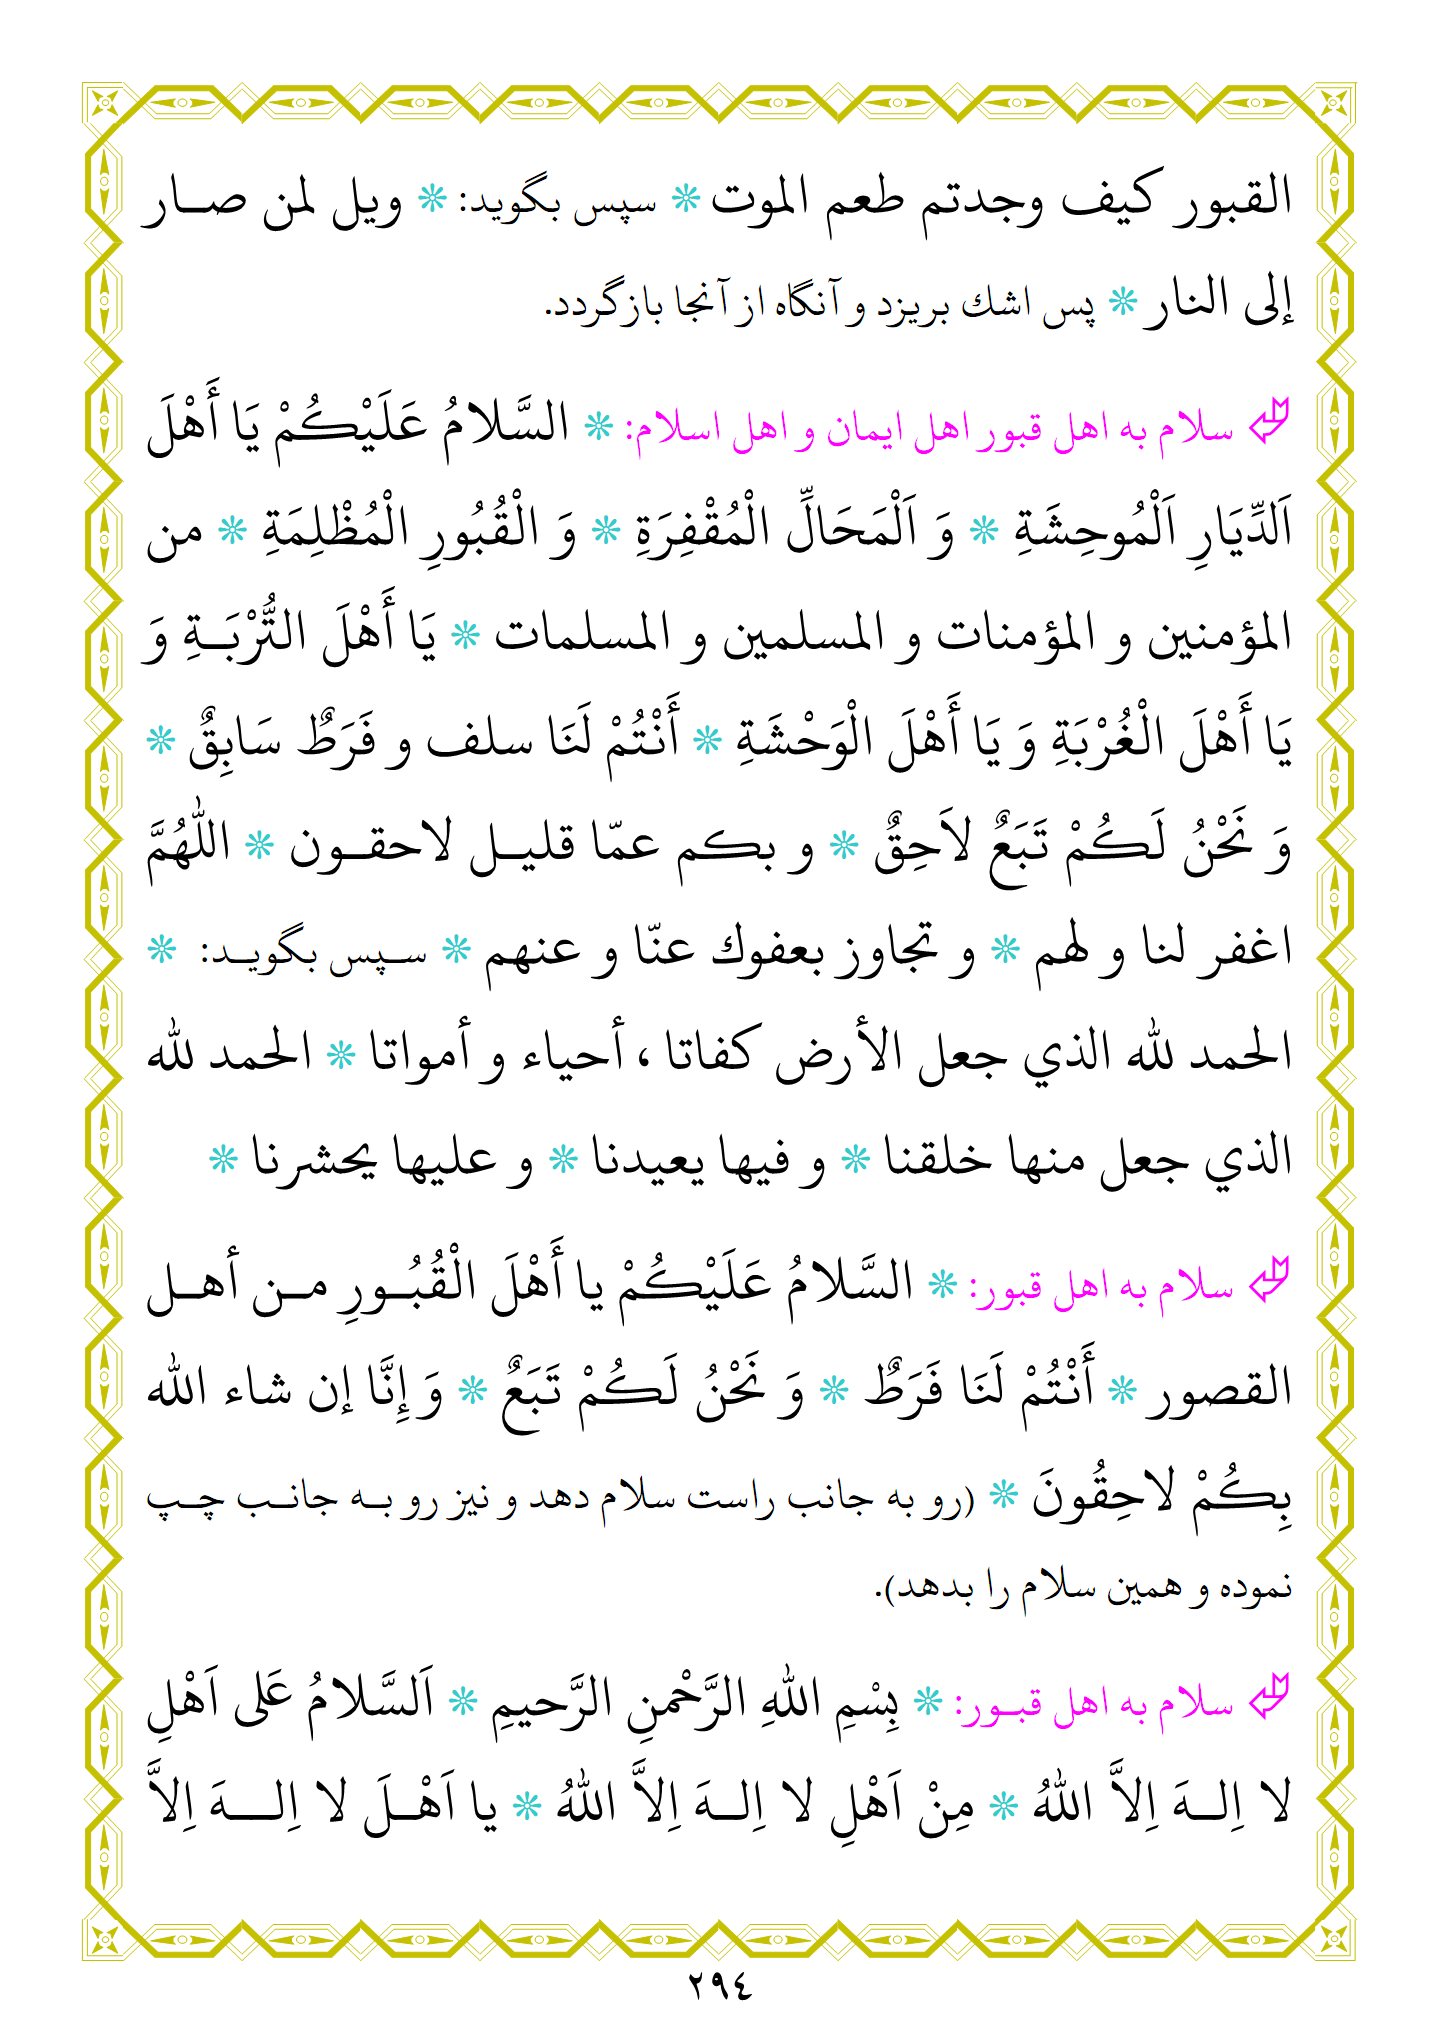 القبور كيف وجدتم طعم الموت * سپس بگوید: * ويل لمن صـار
إلى النار * پس اشك بریزد و آنگاه از آنجا بازگردد.
سلام به اهل قبور اهل ایمان و اهل اسلام: * السَّلامُ عَلَيْكُمْ يَا أَهْلَ
اَلدِّيَارِ اَلْمُوحِشَةِ * وَ اَلْمَحَالِّ الْمُقْفِرَةِ * وَ الْقُبُورِ الْمُظْلِمَةِ * من
المؤمنين و المؤمنات و المسلمين و المسلمات * يَا أَهْلَ التُّرْبَـةِ وَ
يَا أَهْلَ الْغُرْبَةِ وَ يَا أَهْلَ الْوَحْشَةِ * أَنْتُمْ لَنَا سلف و فَرَطٌ سَابِقٌ *
وَ نَحْنُ لَكُمْ تَبَعٌ لاَحِقٌ * و بكم عمّا قليـل لاحقـون * اللهُمَّ
اغفر لنا و لهم * و تجاوز بعفوك عنّا و عنهم * سـپس بگویـد: *
الحمد لله الذي جعل الأرض كفاتا ، أحياء و أمواتا * الحمد لله
الذي جعل منها خلقنا * و فيها يعيدنا * و عليها يحشرنا *
سلام به اهل قبور: * السَّلامُ عَلَيْكُمْ يا أَهْلَ الْقُبُـورِ مـن أهـل
القصور * أَنْتُمْ لَنَا فَرَطٌ * وَ نَحْنُ لَكُمْ تَبَعٌ * وَ إِنَّا إن شاء الله
بِكُمْ لاحِقُونَ * (رو به جانب راست سلام دهد و نیز رو بـه جانـب چـپ
نموده و همین سلام را بدهد).
سلام به اهل قبـور: * بِسْمِ اللهِ الرَّحْمنِ الرَّحيمِ * اَلسَّلامُ عَلى اَهْلِ
لا اِلـهَ اِلاَّ اللهُ * مِنْ اَهْلِ لا اِلـهَ اِلاَّ اللهُ * يا اَهْـلَ لا اِلـــهَ اِلاَّ
٢٩٤